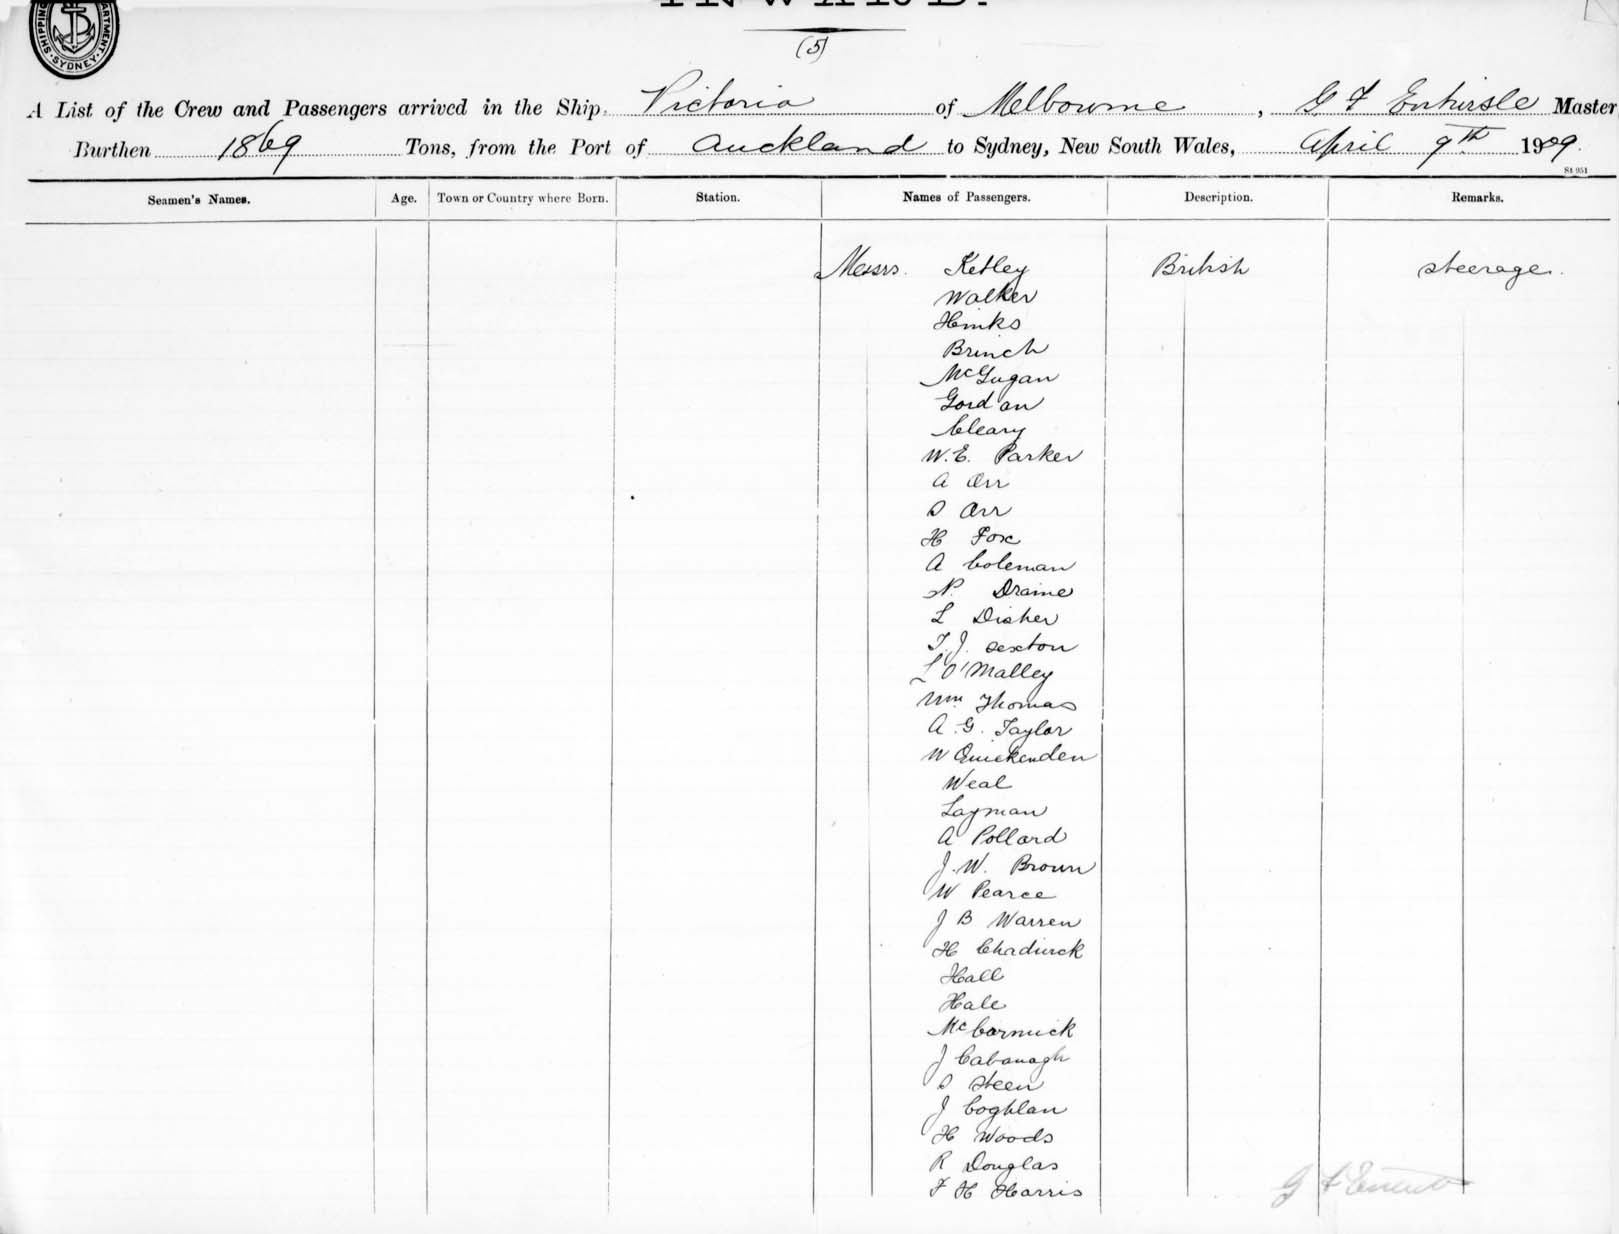 INWARD.
SHIPPING DEPARTMENT. SYDNEY.
(5)
A List of the Crew and Passengers arrived in the Ship, Victoria of Melbourne, G F Entwirsle Master
Burthen 1869 Tons, from the Port of Auckland to Sydney, New South Wales, April 9th 1909.
St 951
Seamen's Names. Age. Town or Country where Born. Station. Names of Passengers. Description. Remarks.
Messrs. Ketley British steerage.
Walker
Hinks
Brinch
McGugan
Gordan
Cleary
W. E. Parker
A Orr
S Orr
H Fox
A Coleman
P. Draine
L Disher
T. J. Sexton
L O'Malley
Wm Thomas
A. G. Taylor
W Quickenden
Weal
Layman
A Pollard
J. W. Brown
W Pearce
J B Warren
H Chadwick
Hall
Hale
McCormick
J Cabanagh
S Steen
J Coghlan
H Woods
R Douglas
F H Harris
G F